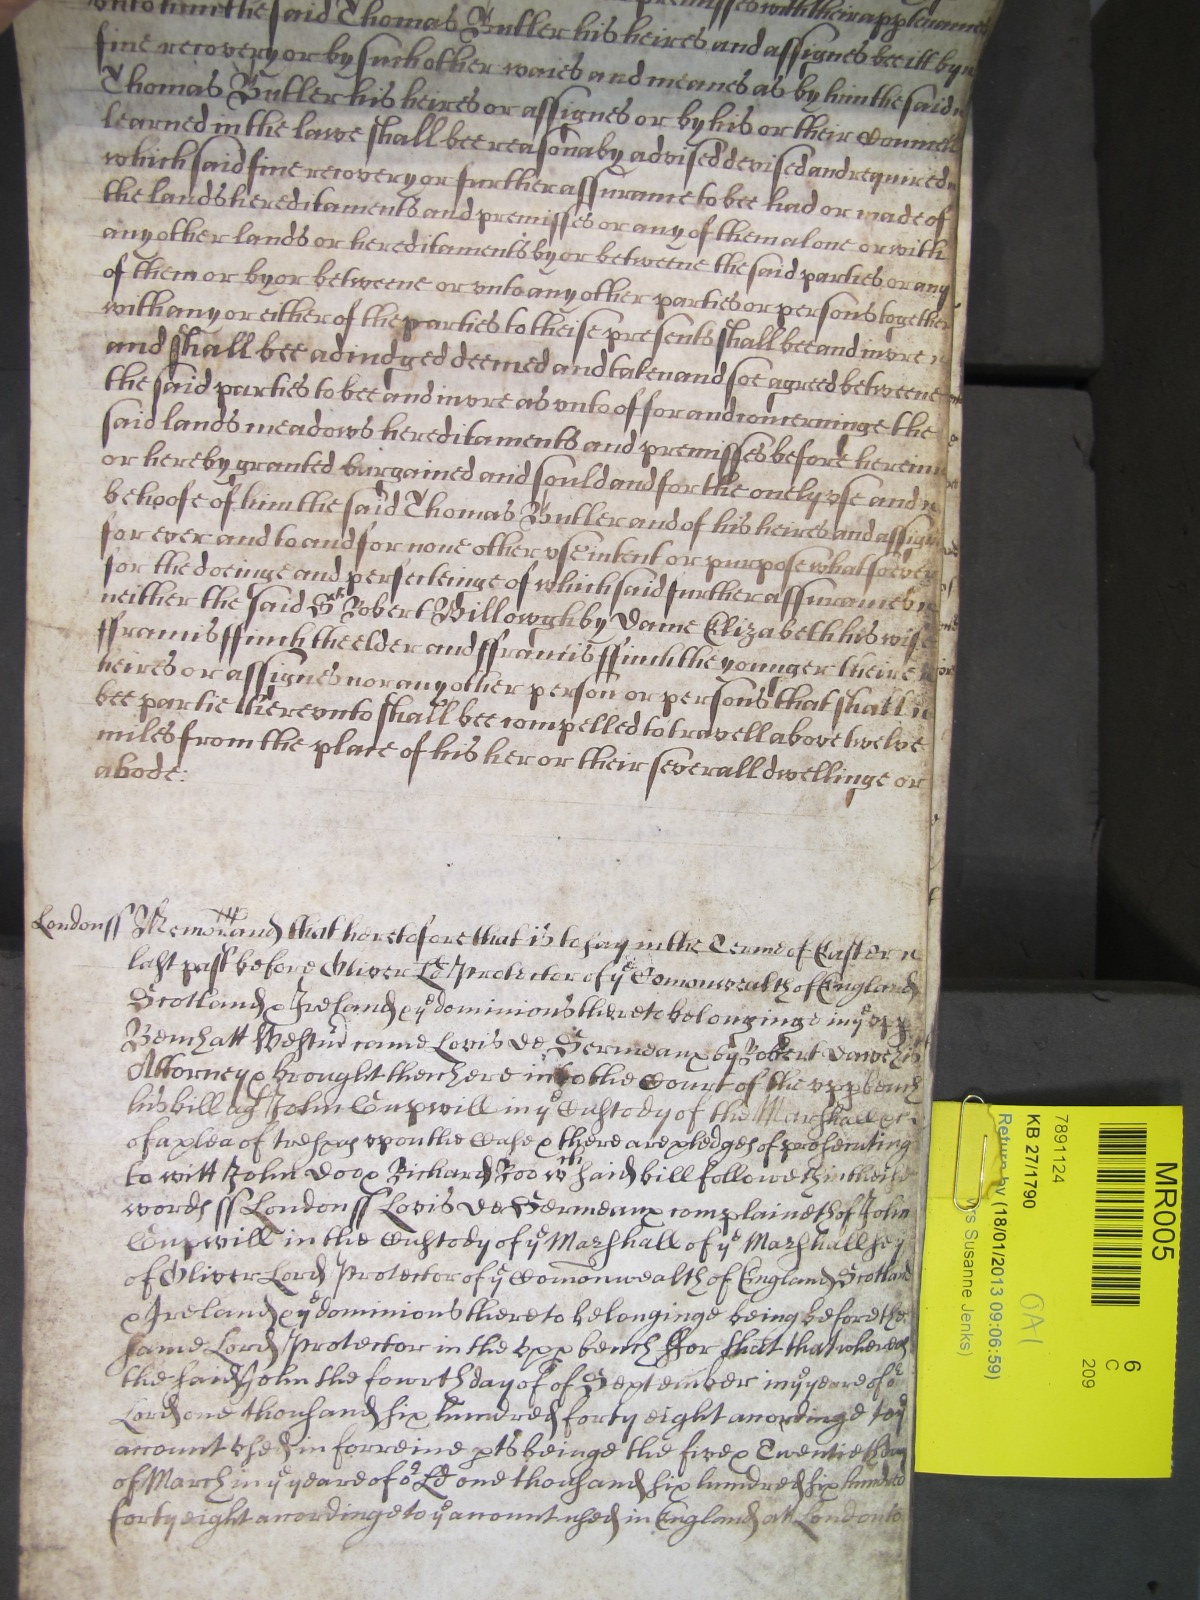 unto him the said Thomas Butler his heires and assignes bee itt by
fine recovery or by such other waies and meanes as by him the said
Thomas Butler his heires or assignes or by his or their Councell
learned in the lawe shall bee reasonaby advised devised and required
which said fine recovery or further assurance to bee had or made of
the lands hereditaments and premisses or any of them alone or with
any other lands or hereditaments by or betweene the said parties or any
of them or by or betweene or unto any other parties or persons together
with any or either of the parties to theise presents shall bee and inure
and shall bee adiudged deemed and taken and soe agreed betweene
the said parties to bee and inure as unto of for and concerninge the
said lands meadows hereditaments and premisses before herein
or hereby granted bargained and sould and for the onely use and
behoofe of him the said Thomas Butler and of his heires and assignes
for ever and to and for none other use intent or purpose whatsoever
for the doeinge and perfecteinge of which said further assurances
neither the said Sr Robert Willowghby Dame Elizabeth his wife
ffrancis ffinch the elder and ffrancis ffinch the younger theire
heires or assignes nor any other person or persons that shall
bee partie thereunto shall bee compelled to travell above twelve
miles from the place of his her or their severall dwellinge or
abode:
London ss Memorand that heretofore that is to say in the Terme of Easter
last past before Oliver Ld Protector of ye Comonwealth of England
Scotland & Ireland & ye dominions thereto belonginge in ye upp
Bench att Westmr came Lovis De Sermeaux by Robert Dawe his
Attorney & brought then here into the Court of the upp bench
his bill agt John Cupwill in ye Custody of the Marshall &c
of a plea of trespas upon the Case & there are pledges of prosecuting
to witt John Doo & Richard Roo wch said bill followeth in theise
words ss London ss Lovis De Sermeaux complaineth of John
Cupwill in the Custody of ye Marshall of ye Marshallsey
of Oliver Lord Protector of ye Comonwealth of England Scotland
& Ireland & ye dominions thereto belonginge being before the
same Lord Protector in the upp bench ffor that that whereas
the said John the fowrth day of of September in ye yeare of or
Lord one thousand six hundred forty eight accordinge to ye
account used in forreine pts beinge the five & Twentieth day
of March in ye yeare of or Ld one thousand six hundred six hundred
forty eight accordinge to ye account used in England att London
MR005
6
C
209
7891124
KB 27/1790
Return by (18/01/2013 09:06:59)
Susanne Jenks)